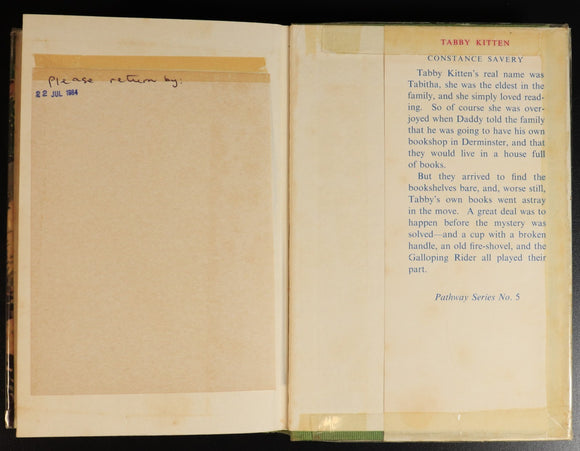 please return by:
22 JUL 1984
TABBY KITTEN
CONSTANCE SAVERY
Tabby Kitten's real name was
Tabitha, she was the eldest in the
family, and she simply loved read-
ing. So of course she was over-
joyed when Daddy told the family
that he was going to have his own
bookshop in Derminster, and that
they would live in a house full
of books.
But they arrived to find the
bookshelves bare, and, worse still,
Tabby's own books went astray
in the move. A great deal was to
happen before the mystery was
solved—and a cup with a broken
handle, an old fire-shovel, and the
Galloping Rider all played their
part.
Pathway Series No. 5